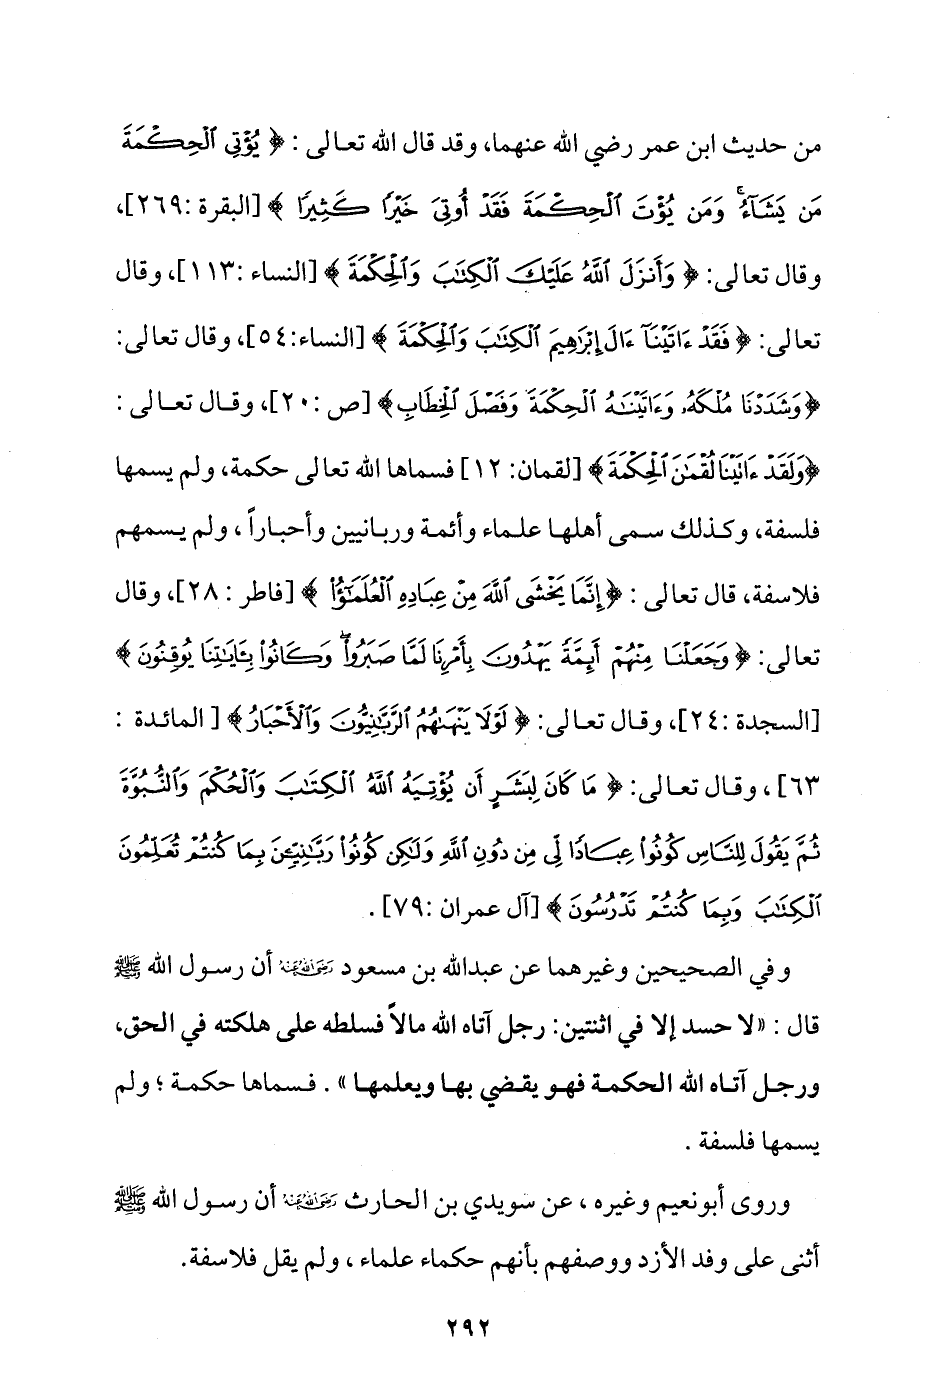 من حديث ابن عمر رضي الله عنهما، وقد قال الله تعالى : ﴿ يُؤْتِي ٱلْحِكْمَةَ
مَن يَشَآءُ ۚ وَمَن يُؤْتَ ٱلْحِكْمَةَ فَقَدْ أُوتِيَ خَيْرًا كَثِيرًا ﴾ [البقرة :٢٦٩]،
وقال تعالى: ﴿ وَأَنزَلَ ٱللَّهُ عَلَيْكَ ٱلْكِتَٰبَ وَٱلْحِكْمَةَ ﴾ [النساء :١١٣]، وقال
تعالى: ﴿ فَقَدْ ءَاتَيْنَآ ءَالَ إِبْرَٰهِيمَ ٱلْكِتَٰبَ وَٱلْحِكْمَةَ ﴾ [النساء:٥٤]، وقال تعالى:
﴿وَشَدَدْنَا مُلْكَهُۥ وَءَاتَيْنَٰهُ ٱلْحِكْمَةَ وَفَصْلَ ٱلْخِطَابِ﴾ [ص :٢٠]، وقال تعالى :
﴿وَلَقَدْ ءَاتَيْنَا لُقْمَٰنَ ٱلْحِكْمَةَ﴾ [لقمان: ١٢] فسماها الله تعالى حكمة، ولم يسمها
فلسفة، وكذلك سمى أهلها علماء وأئمة وربانيين وأحباراً ، ولم يسمهم
فلاسفة، قال تعالى : ﴿إِنَّمَا يَخْشَى ٱللَّهَ مِنْ عِبَادِهِ ٱلْعُلَمَٰٓؤُا۟ ﴾ [فاطر : ٢٨]، وقال
تعالى: ﴿ وَجَعَلْنَا مِنْهُمْ أَئِمَّةً يَهْدُونَ بِأَمْرِنَا لَمَّا صَبَرُوا۟ ۖ وَكَانُوا۟ بِـَٔايَٰتِنَا يُوقِنُونَ ﴾
[السجدة :٢٤]، وقال تعالى: ﴿ لَوْلَا يَنْهَىٰهُمُ ٱلرَّبَّٰنِيُّونَ وَٱلْأَحْبَارُ ﴾ [ المائدة :
٦٣] ، وقال تعالى: ﴿ مَا كَانَ لِبَشَرٍ أَن يُؤْتِيَهُ ٱللَّهُ ٱلْكِتَٰبَ وَٱلْحُكْمَ وَٱلنُّبُوَّةَ
ثُمَّ يَقُولَ لِلنَّاسِ كُونُوا۟ عِبَادًا لِّي مِن دُونِ ٱللَّهِ وَلَٰكِن كُونُوا۟ رَبَّٰنِيِّـۧنَ بِمَا كُنتُمْ تُعَلِّمُونَ
ٱلْكِتَٰبَ وَبِمَا كُنتُمْ تَدْرُسُونَ ﴾ [آل عمران :٧٩] .
وفي الصحيحين وغيرهما عن عبدالله بن مسعود رضي الله عنه أن رسول الله ﷺ
قال : «لا حسد إلا في اثنتين: رجل آتاه الله مالاً فسلطه على هلكته في الحق،
ورجل آتاه الله الحكمة فهو يقضي بها ويعلمها» . فسماها حكمة ؛ ولم
يسمها فلسفة .
وروى أبونعيم وغيره ، عن سويدي بن الحارث رضي الله عنه أن رسول الله ﷺ
أثنى على وفد الأزد ووصفهم بأنهم حكماء علماء ، ولم يقل فلاسفة.
٢٩٢